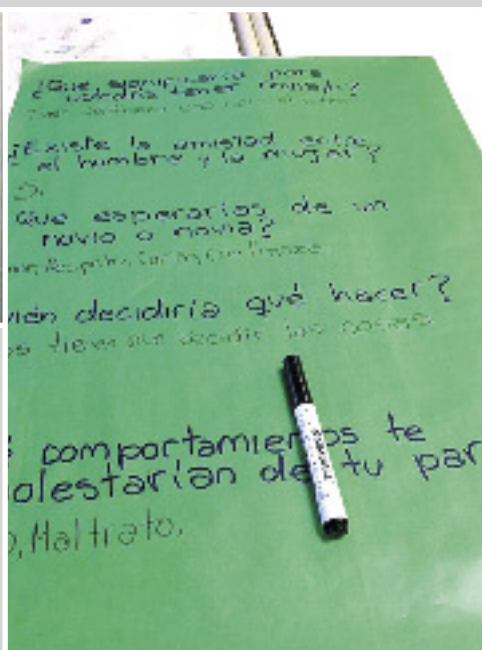 ¿Qué para
tener
¿Existe la amistad entre
el hombre y la mujer?
Si
Que esperarías de un
novio o novia?
Cariño, Confianza
ién decidiría qué hacer?
os tienen que decidir las cosas
comportamientos te
olestarían de tu par
o, Maltrato.